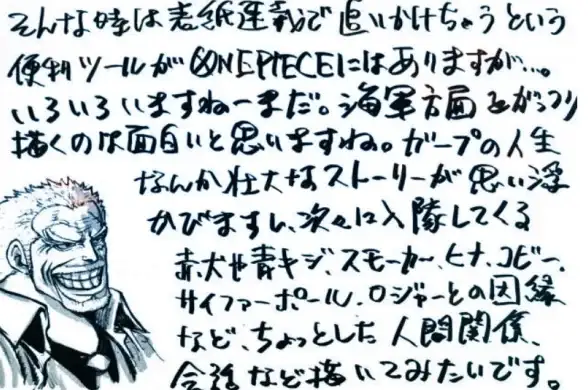 そんな時は表紙連載で追いかけちゃうという
便利ツールがONE PIECEにはありますが…。
いろいろいますねーまだ。海軍方面をがっつり
描くのは面白いと思いますね。ガープの人生
なんか壮大なストーリーが思い浮
かびますし、次々に入隊してくる
赤犬や青キジ、スモーカー、ヒナ、コビー、
サイファーポール、ロジャーとの因縁
など、ちょっとした人間関係、
会話など描いてみたいです。